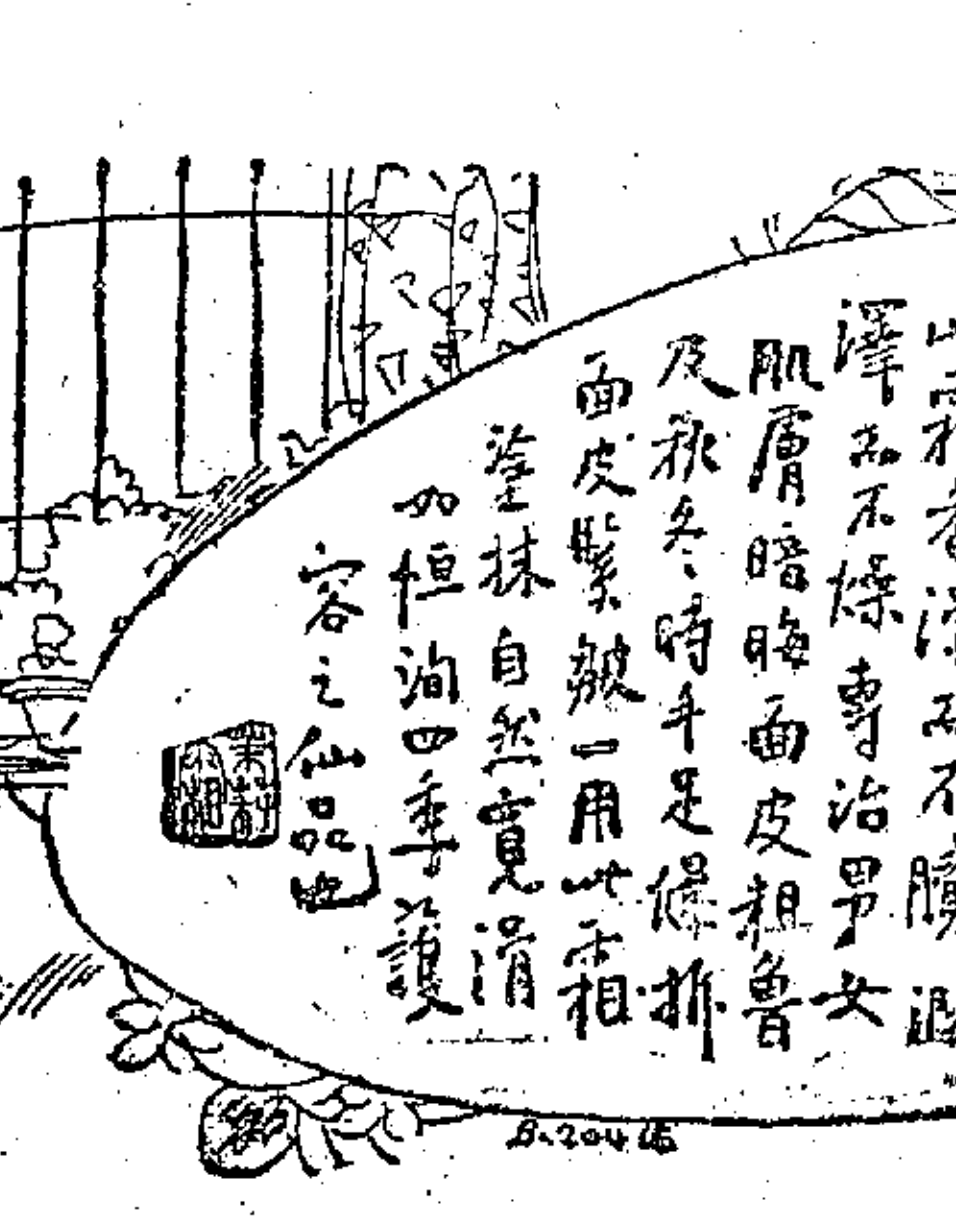 此霜香潔而不膩潤
澤而不燥專治男女
肌膚暗晦面皮粗魯
及秋冬時手足爆拆
面皮緊皺一用此霜
塗抹自然寬滑
如恒洵四季護
容之仙品也
B.204